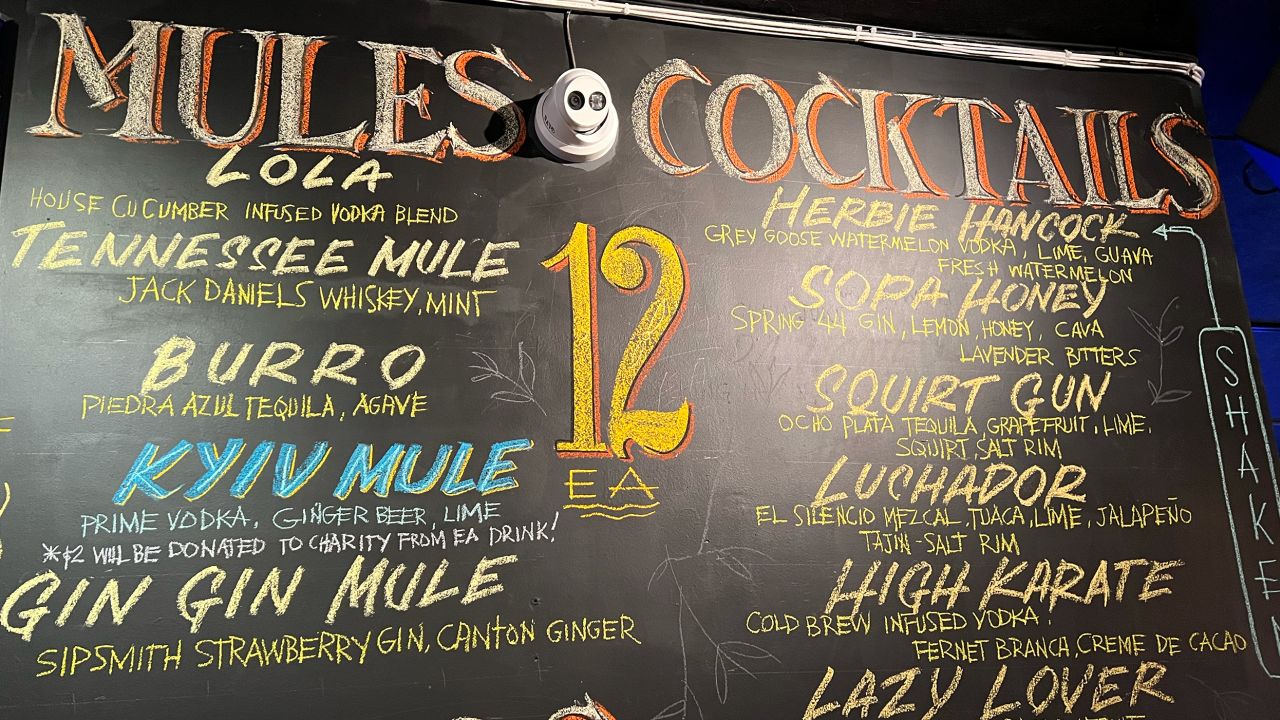 MULES
LOLA
HOUSE CUCUMBER INFUSED VODKA BLEND
TENNESSEE MULE
JACK DANIELS WHISKEY, MINT
BURRO
PIEDRA AZUL TEQUILA, AGAVE
KYIV MULE
PRIME VODKA, GINGER BEER, LIME
*$2 WILL BE DONATED TO CHARITY FROM EA DRINK!
GIN GIN MULE
SIPSMITH STRAWBERRY GIN, CANTON GINGER
12
EA
COCKTAILS
HERBIE HANCOCK
GREY GOOSE WATERMELON VODKA, LIME, GUAVA
FRESH WATERMELON
SOPA HONEY
SPRING 44 GIN, LEMON, HONEY, CAVA
LAVENDER BITTERS
SQUIRT GUN
OCHO PLATA TEQUILA, GRAPEFRUIT, LIME,
SQUIRT, SALT RIM
LUCHADOR
EL SILENCIO MEZCAL, TUACA, LIME, JALAPEÑO
TAJIN-SALT RIM
HIGH KARATE
COLD BREW INFUSED VODKA,
FERNET BRANCA, CREME DE CACAO
LAZY LOVER
SHAKEN